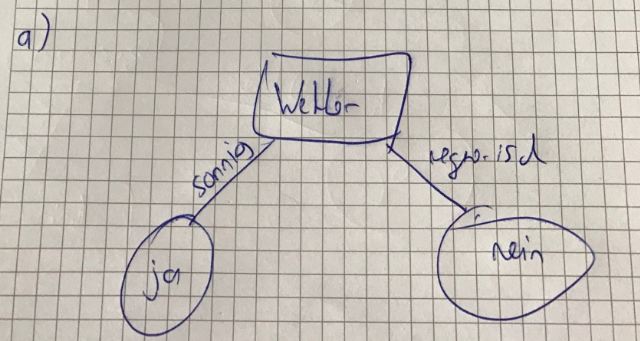 a)
Wetter
sonnig
regnerisch
ja
nein